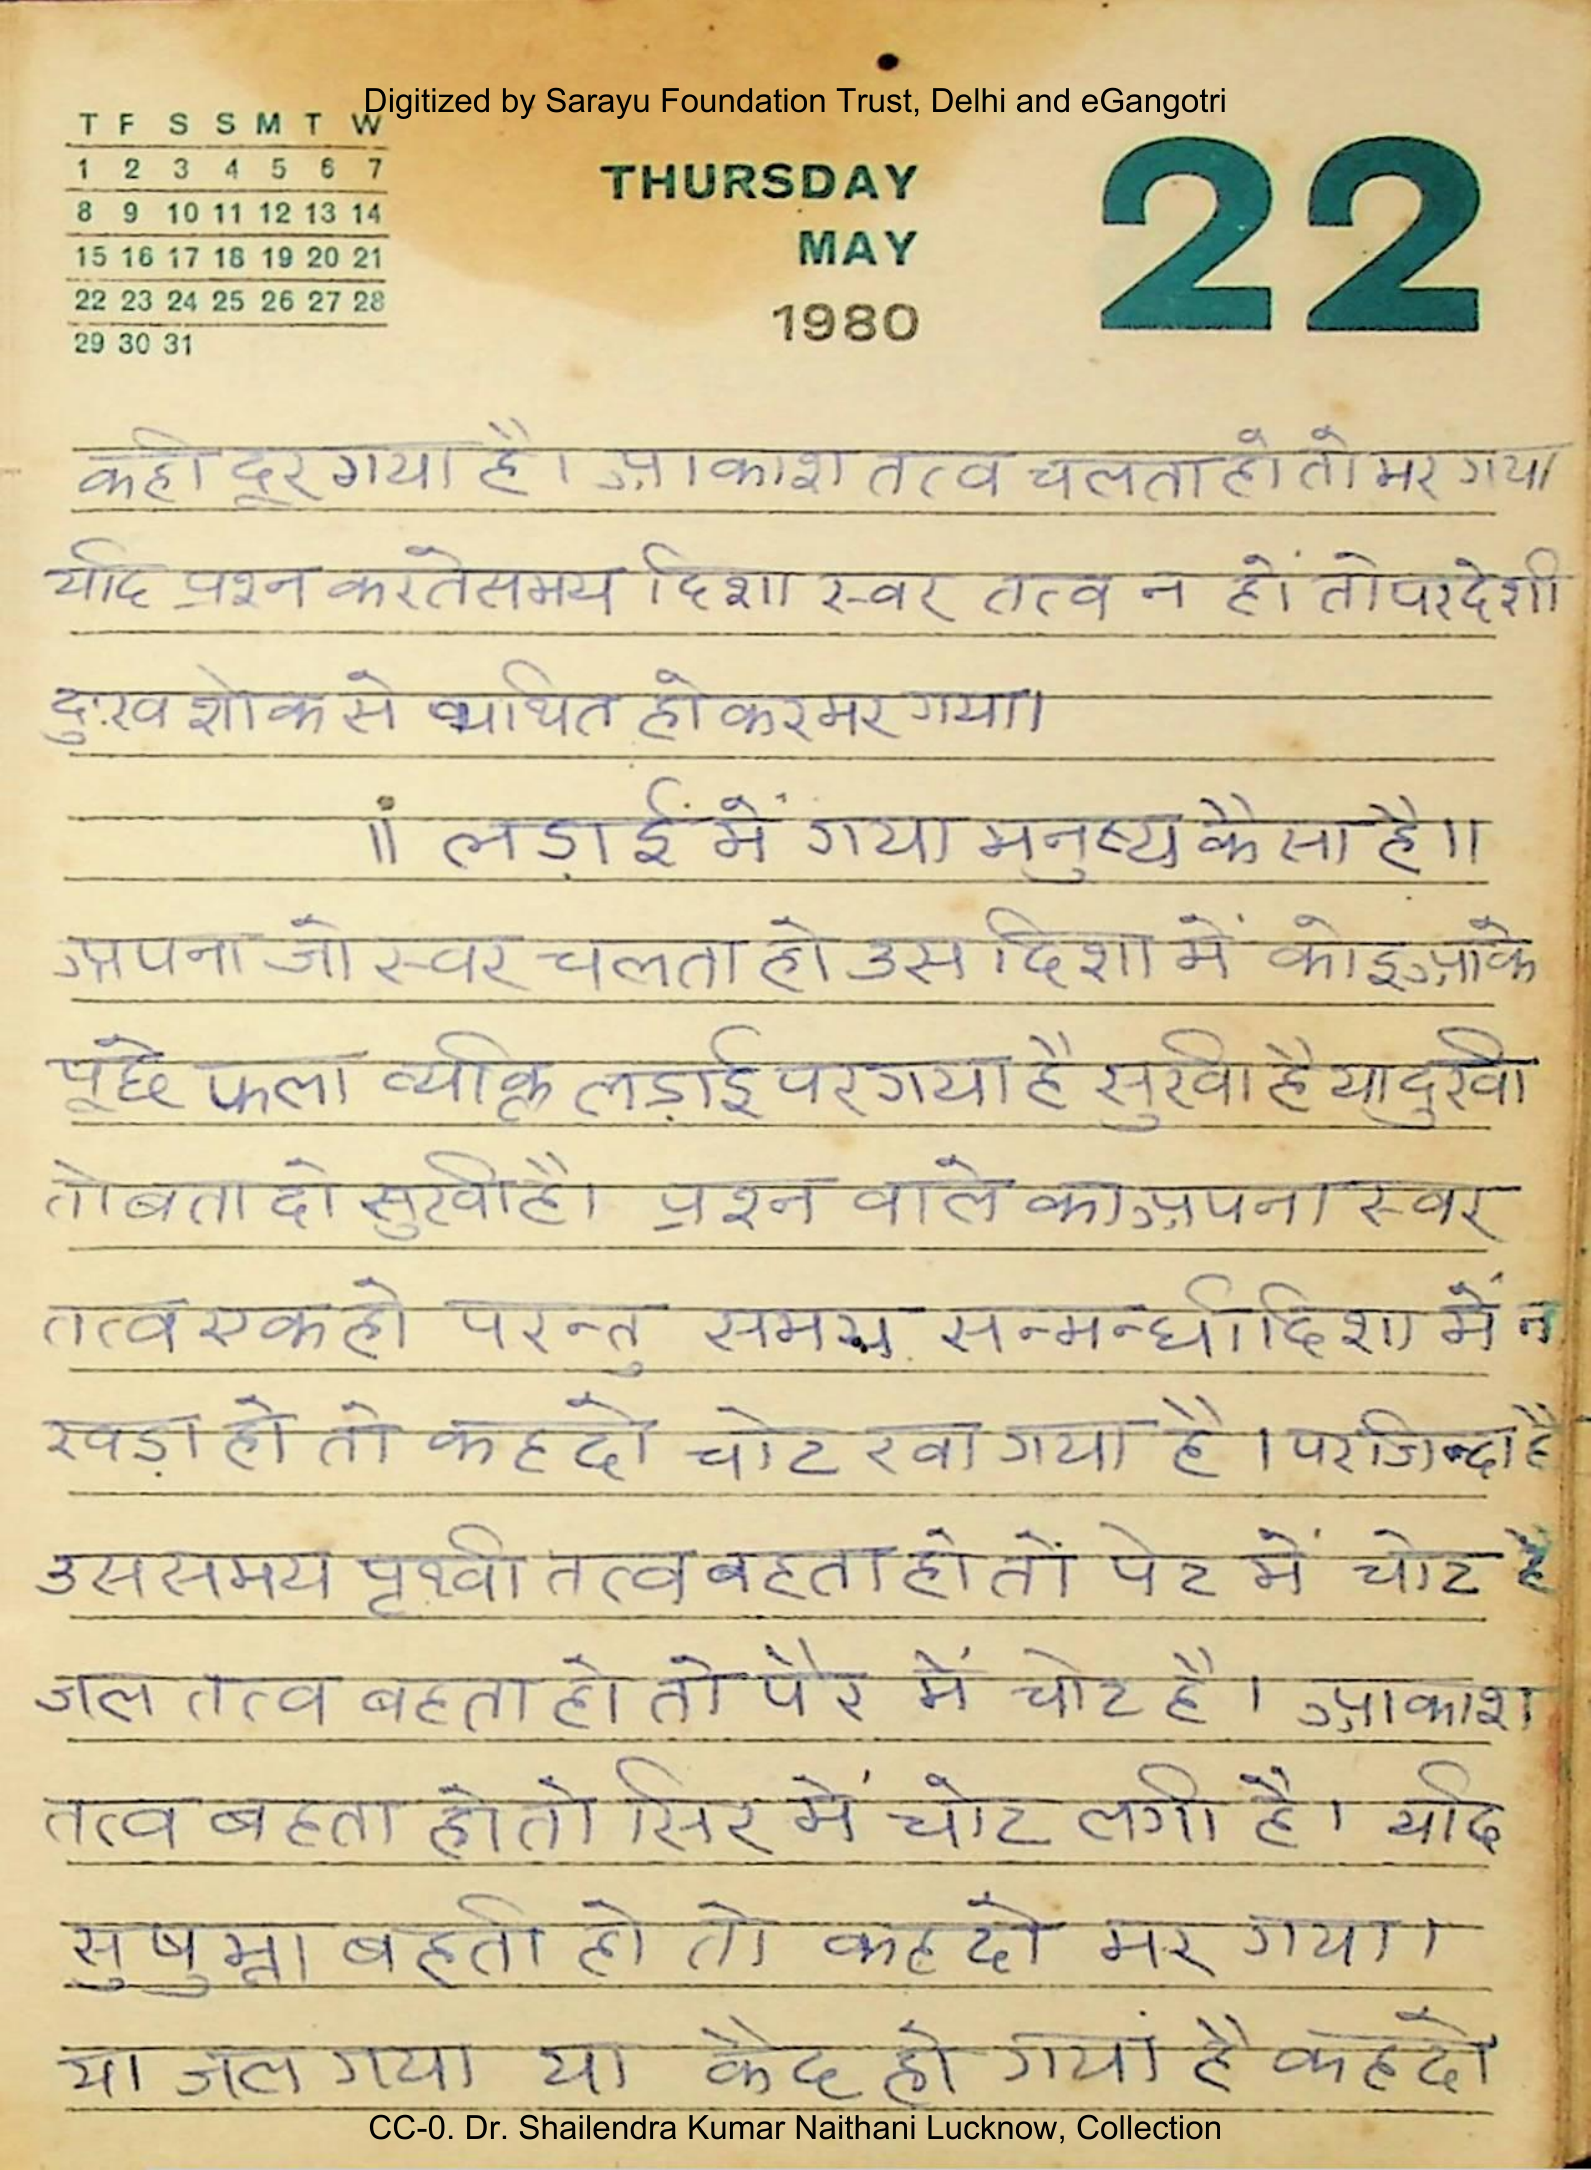 Digitized by Sarayu Foundation Trust, Delhi and eGangotri
T F S S M T W
1 2 3 4 5 6 7
8 9 10 11 12 13 14
15 16 17 18 19 20 21
22 23 24 25 26 27 28
29 30 31
THURSDAY
MAY
1980
22
कही दूर गया है। आकाश तत्व चलता हो तो मर गया
यदि प्रश्न करते समय दिशा स्वर तत्व न हों तो परदेशी
दुःख शोक से व्यथित होकर मर गया।
॥ लड़ाई में गया मनुष्य कैसा है॥
अपना जो स्वर चलता हो उस दिशा में कोइ आके
पूछे फला व्यक्ति लड़ाई पर गया है सुखी है या दुखी
तो बता दो सुखी है। प्रश्न वाले का अपना स्वर
तत्व एक हो परन्तु समय सन्मन्धी दिशा में न
खड़ा हो तो कह दो चोट खा गया है। पर जिन्दा है
उस समय पृथ्वी तत्व बहता हो तों पेट में चोट है
जल तत्व बहता हो तो पैर में चोट है। आकाश
तत्व बहता हो तो सिर में चोट लगी है। यदि
सुषुम्ना बहती हो तो कह दो मर गया।
या जल गया या कैद हो गया है कह दो
CC-0. Dr. Shailendra Kumar Naithani Lucknow, Collection